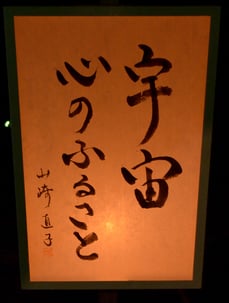 宇宙
心のふるさと
山崎直子